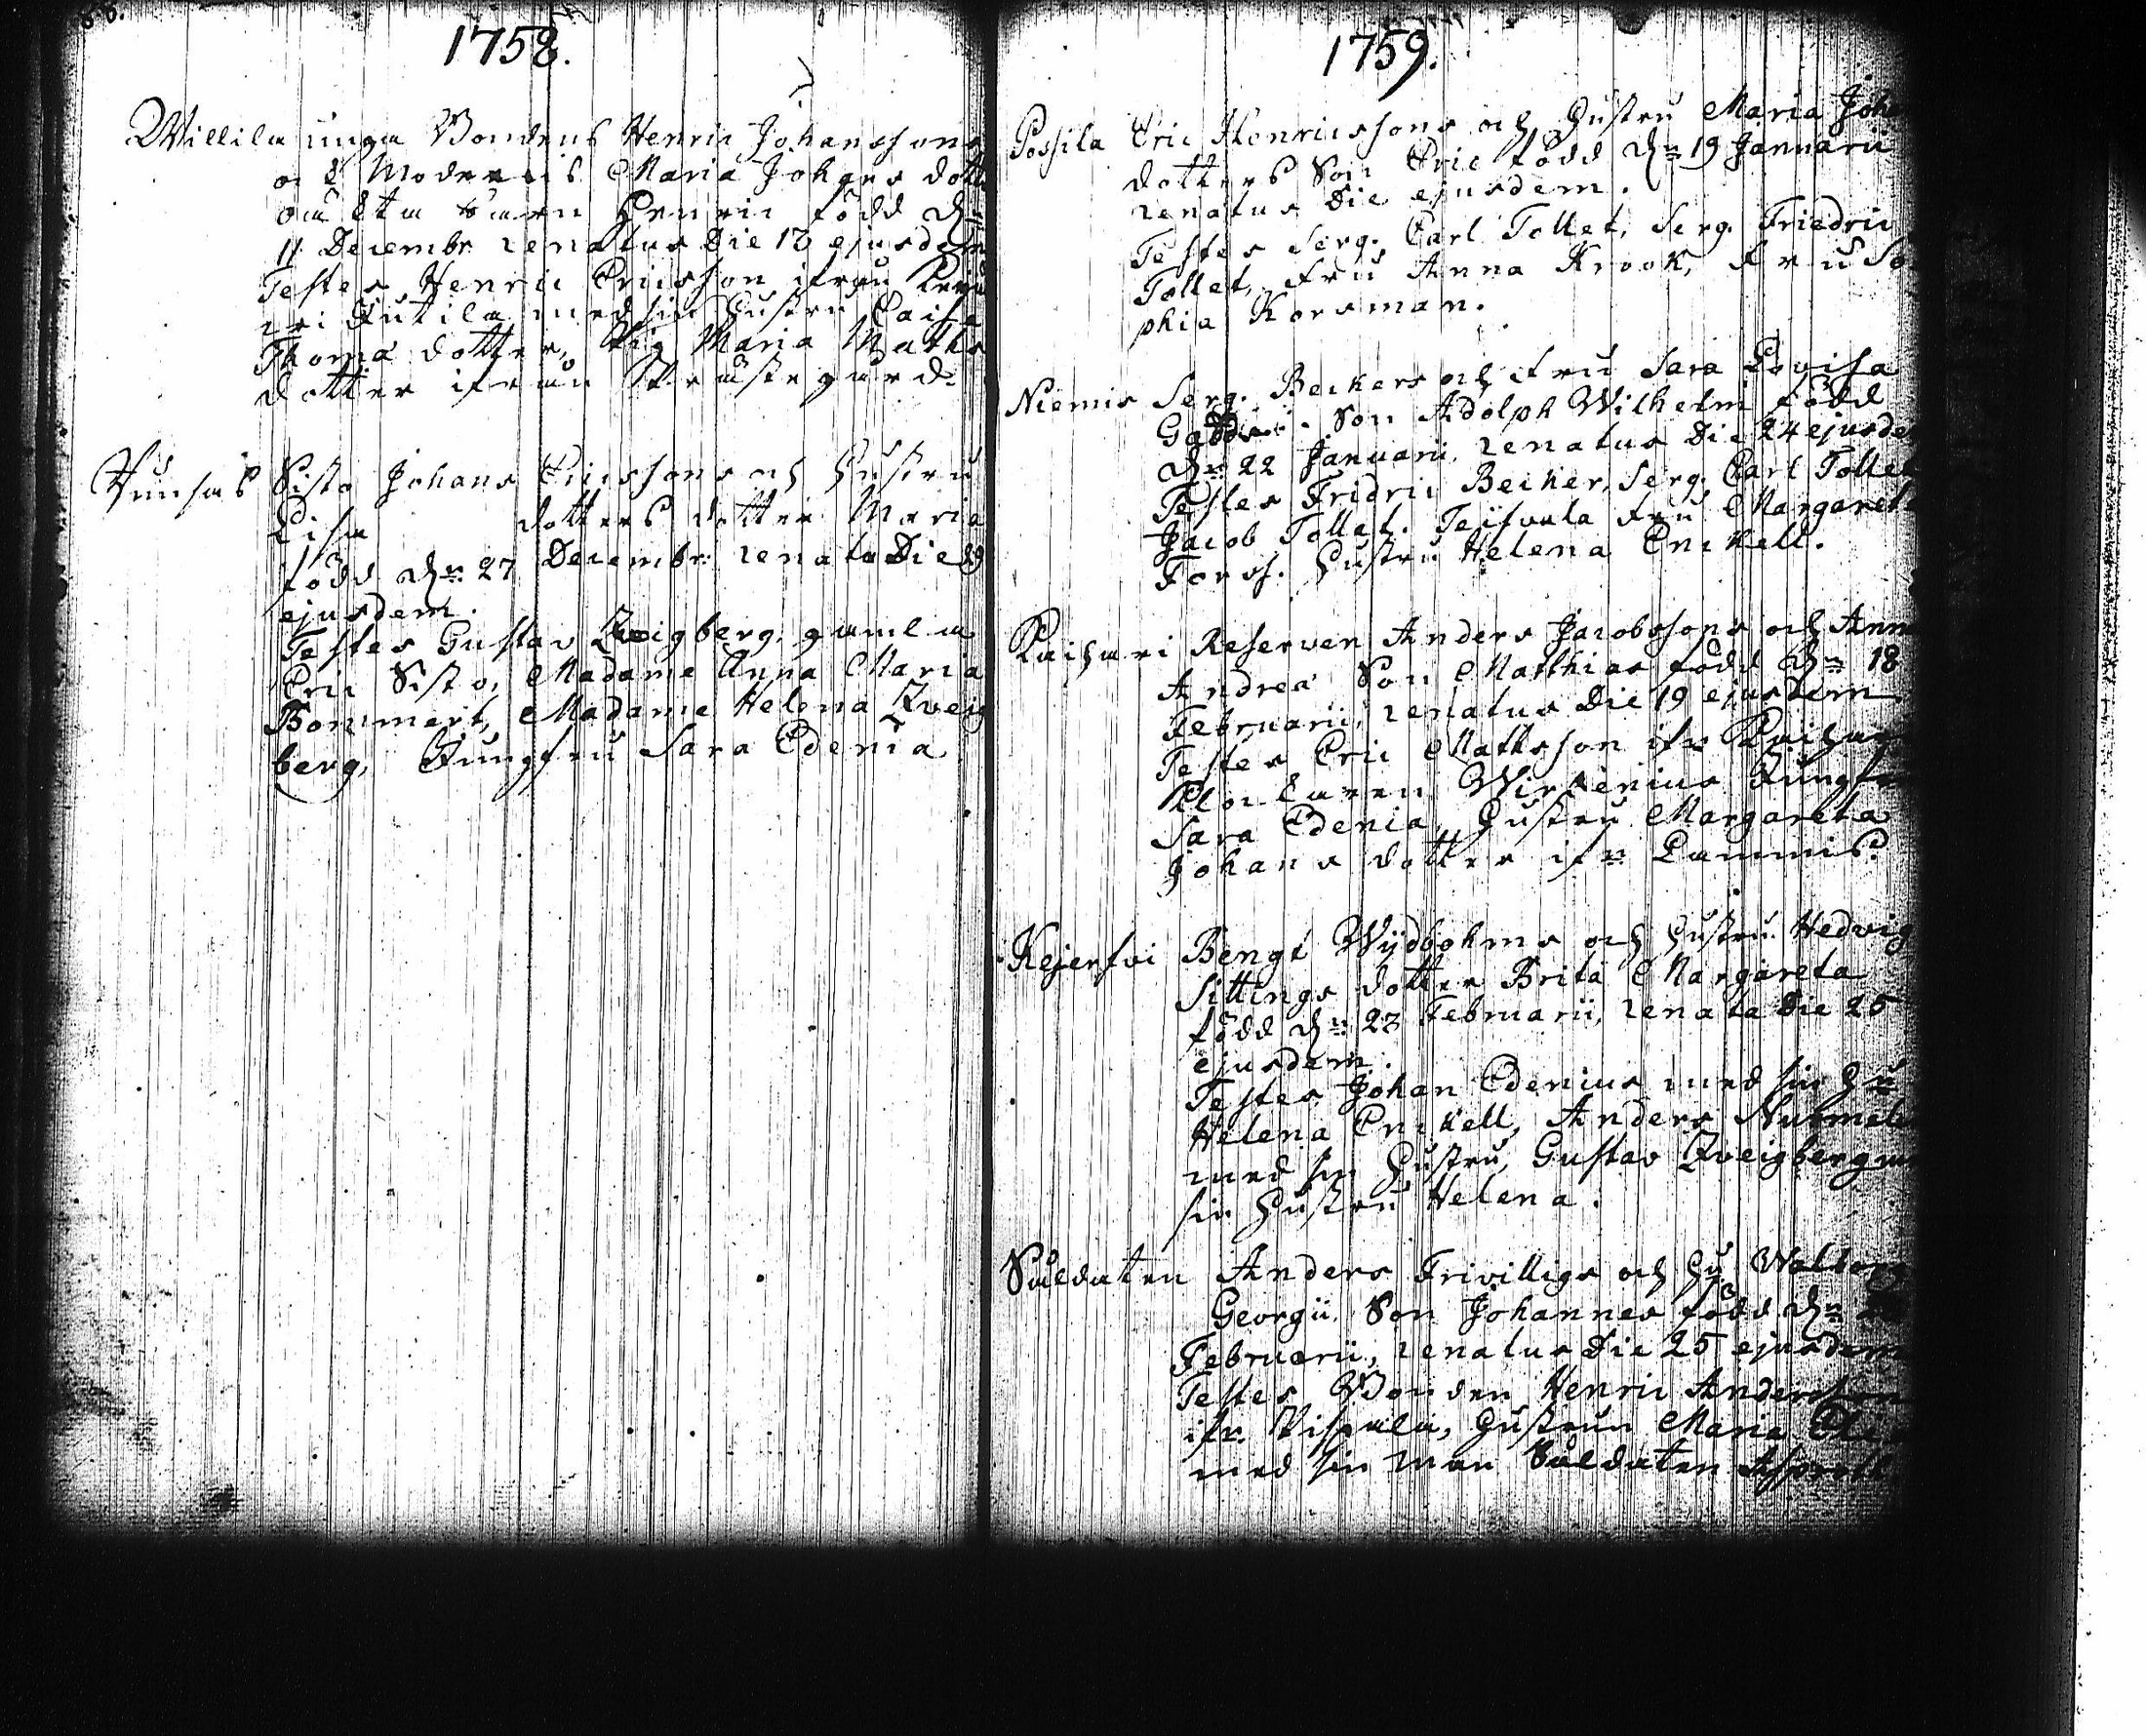 86.
1758.
Willila unga Bondens Henric Johanssons
och Moderens Maria Johans dott
oächta barn Henric född dn
11 Decembr renatus Die 13 ejusdem
Testes Henric Ericsson ifrån
Jutila med sin Hustru Caisa
Thomæ dotter, Pig Maria Maths
dotter ifrån
Sisto Johans Ericssons och Hustru
Lisa dotters dotter Maria
född dn 27 Decembr: renata Die 29
ejusdem.
Testes Gustav Zveigberg, gamla
Eric Sisto, Madame Anna Maria
Bommert, Madame Helena Zveig
berg, Jungfru Sara Edenia
1759.
Possila Eric Henricssons och Hustru Maria Joha
dotters Son Eric född dn 19 Januarii
renatus Die ejusdem.
Testes Serg. Carl Tollet, Serg. Friedric
Tollet, Fru Anna Krook, Fru So
phia Korsman.
Niemis Serg. Beckers och Fru Sara Lovisa
Son Adolph Wilhelm född
dn 22 Januarii, renatus Die 24 ejusde
Testes Fridric Becker, Serg. Carl Tollet
Jacob Tollet. Teisvala Fru Margaret
Forss. Hustru Helena Enckell.
Raihari Reserven Anders Jacobssons och Ann
Andreæ Son Matthias född dn 18
Februarii, renatus Die 19 ejusdem
Testes Eric Mathsson ifr Raihar
Klockaren Wirzenius Jungfr
Sara Edenia, Hustru Margareta
Johans dotter ifn Lammis.
Kejerfvi Bengt Wijdbohms och Hustru Hedvig
Sittings dotter Brita Margareta
född dn 23 Februarii, renata Die 25
ejusdem.
Testes Johan Edenius med sin Hu
Helena Enckell, Anders
med sin Hustru, Gustav Zveigberg
sin Hustru Helena.
Saldaten Anders Frivilligs och Hu Walborg
Georgii Son Johannes född dn
Februarii, renatus Die 25 ejusdem
Testes Bonden Henric Andersson
ifr. Hustrun Maria
med sin man Saldaten